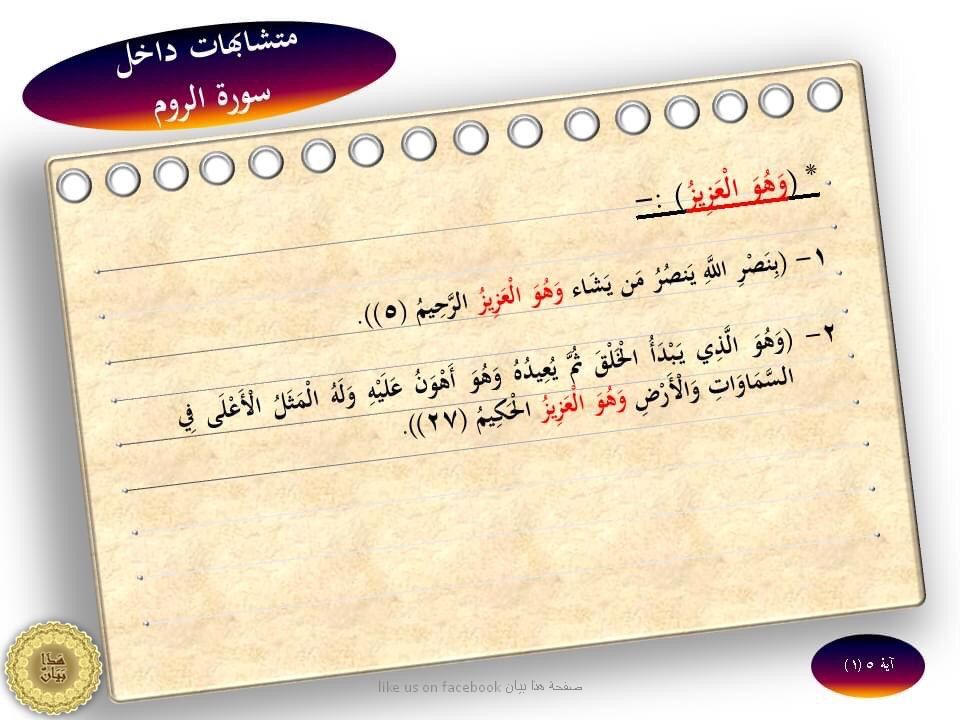 متشابهات داخل
سورة الروم
* (وَهُوَ الْعَزِيزُ) :-
١- (بِنَصْرِ اللَّهِ يَنصُرُ مَن يَشَاء وَهُوَ الْعَزِيزُ الرَّحِيمُ (٥)).
٢- (وَهُوَ الَّذِي يَبْدَأُ الْخَلْقَ ثُمَّ يُعِيدُهُ وَهُوَ أَهْوَنُ عَلَيْهِ وَلَهُ الْمَثَلُ الْأَعْلَى فِي
السَّمَاوَاتِ وَالْأَرْضِ وَهُوَ الْعَزِيزُ الْحَكِيمُ (٢٧)).
هَذَا
بَيَانٌ
like us on facebook صفحة هذا بيان
آية ٥ (١)